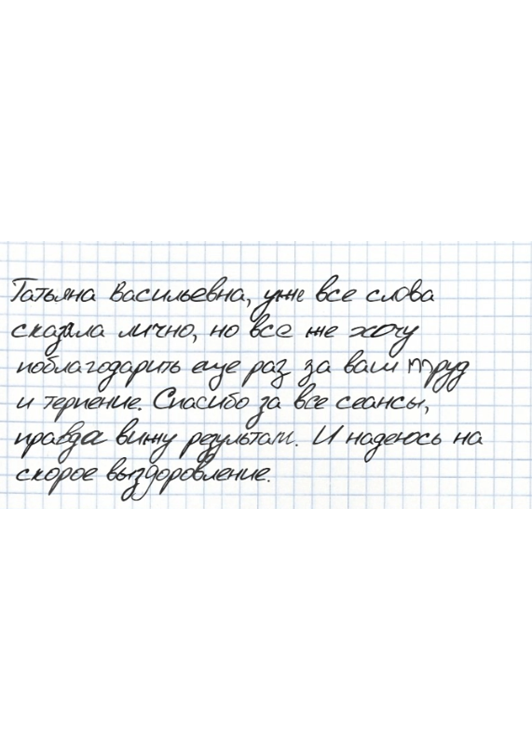 Татьяна Васильевна, уже все слова
сказала лично, но все же хочу
поблагодарить еще раз за ваш труд
и терпение. Спасибо за все сеансы,
правда вижу результат. И надеюсь на
скорое выздоровление.